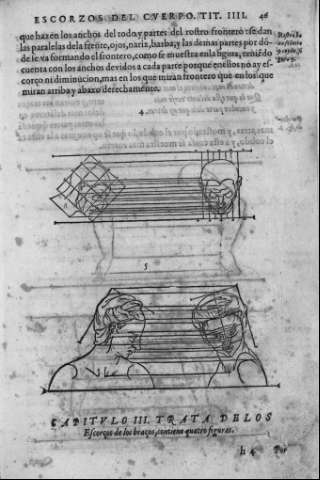 ESCORZOS DEL CVERPO. TIT. IIII. 46
que hazen los anchos del todo y partes del rostro frontero: se dan
las paralelas de la frēte, ojos, nariz, barba, y las demas partes por dō-
de se va formando el frontero, como se muestra en la figura, teniēdo
cuenta con los anchos devidos a cada parte porque en ellos no ay es-
corço ni diminucion, mas en los que miran frontero que en los que
miran arriba y abaxo derechamente.
4.
5
CAPITVLO III. TRATA DE LOS
Escorços de los braços, contiene quatro figuras.
h 4 Por